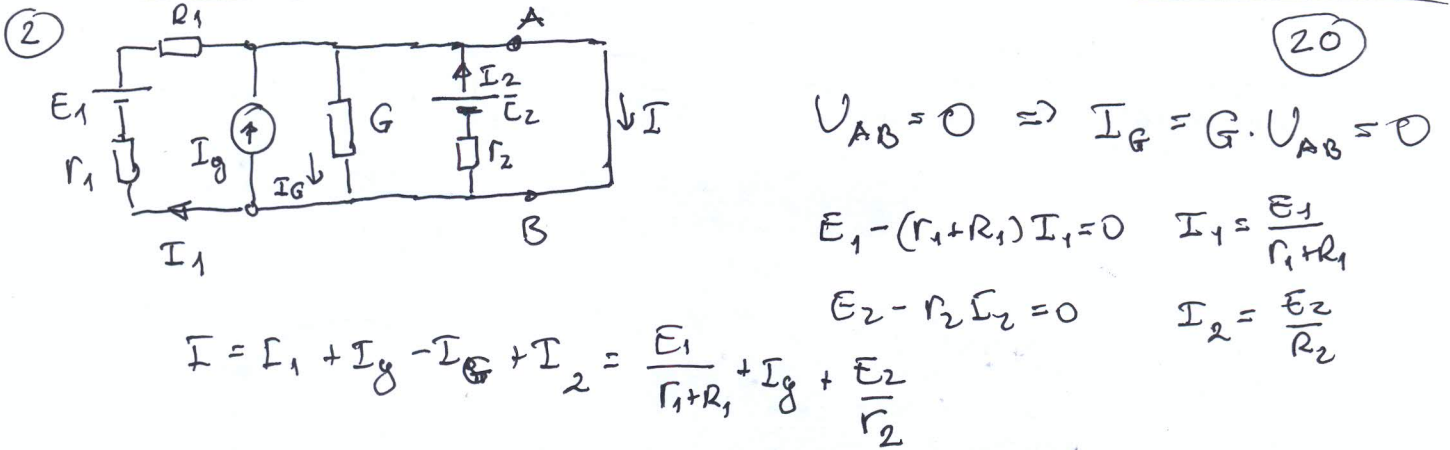 2
20
R1
A
E1
Ig
G
I2
E2
I
r1
IG
r2
I1
B
UAB = 0 => IG = G · UAB = 0
E1 - (r1+R1) I1 = 0 I1 = E1/(r1+R1)
E2 - r2 I2 = 0 I2 = E2/R2
I = I1 + Ig - IG + I2 = E1/(r1+R1) + Ig + E2/r2